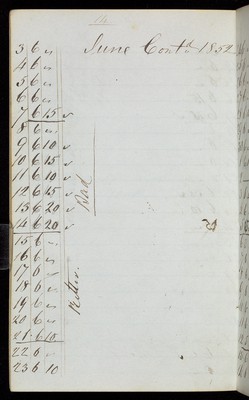 14
June Contd 1852
3 6 "
4 6 "
5 6 "
6 6 "
7 6 15
8 6 "
9 6 10
10 6 15
11 6 10
12 6 15
13 6 20
14 6 20
15 6 "
16 6 "
17 6 "
18 6 "
19 6 "
20 6 "
21 6 10
22 6 "
23 6 10
Bad
Better